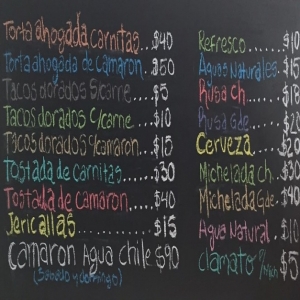 Torta ahogada carnitas...$40
Torta ahogada de camaron..$50
Tacos dorados S/carne....$5
Tacos dorados c/carne....$10
Tacos dorados c/camaron...$15
Tostada de carnitas.....$30
Tostada de camaron.....$40
Jericallas.......$15
Camaron Agua chile $90
(Sabado y domingo)
Refresco....$10
Aguas Naturales..$15
Rusa Ch.....
Rusa Gde.....
Cerveza.....$20
Michelada Ch...$30
Michelada Gde..$40
Agua Natural..$10
clamato $5